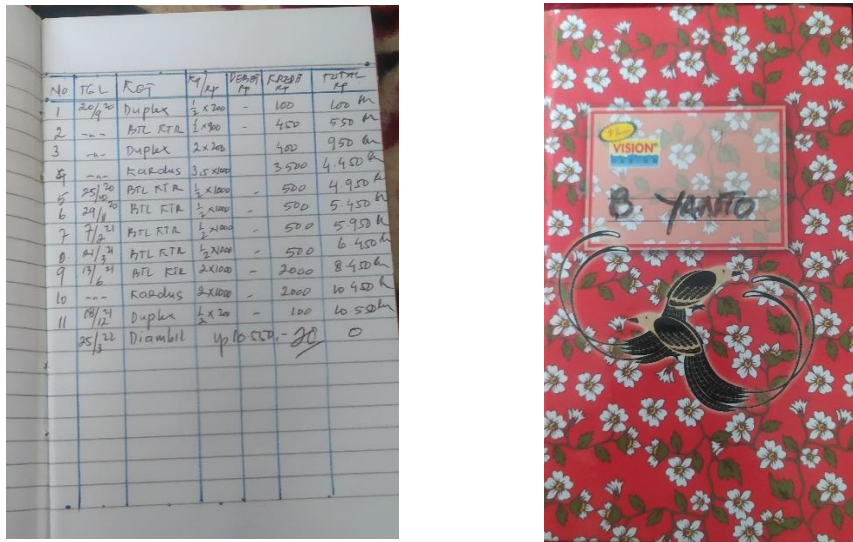 No TGL KET Kg/Rp DEBET Rp KREDIT Rp TOTAL Rp
1 20/9 20 Duplex ½ x 200 - 100 100
2 -"- BTL KTR ½ x 900 - 450 550
3 -"- Duplex 2 x 200 400 950
4 -"- Kardus 3,5 x 1000 3.500 4.450
5 25/10 20 BTL KTR ½ x 1000 - 500 4.950
6 29/11 20 BTL KTR ½ x 1000 - 500 5.450
7 7/2 21 BTL KTR ½ x 1000 - 500 5.950
8 21/3 21 BTL KTR ½ x 1000 - 500 6.450
9 13/6 21 BTL KTR 2 x 1000 - 2000 8.450
10 -"- Kardus 2 x 1000 - 2000 10.450
11 08/12 21 Duplex ½ x 200 - 100 10.550
25/3 22 Diambil Rp 10.550,- 0
VISION
B. YANTO